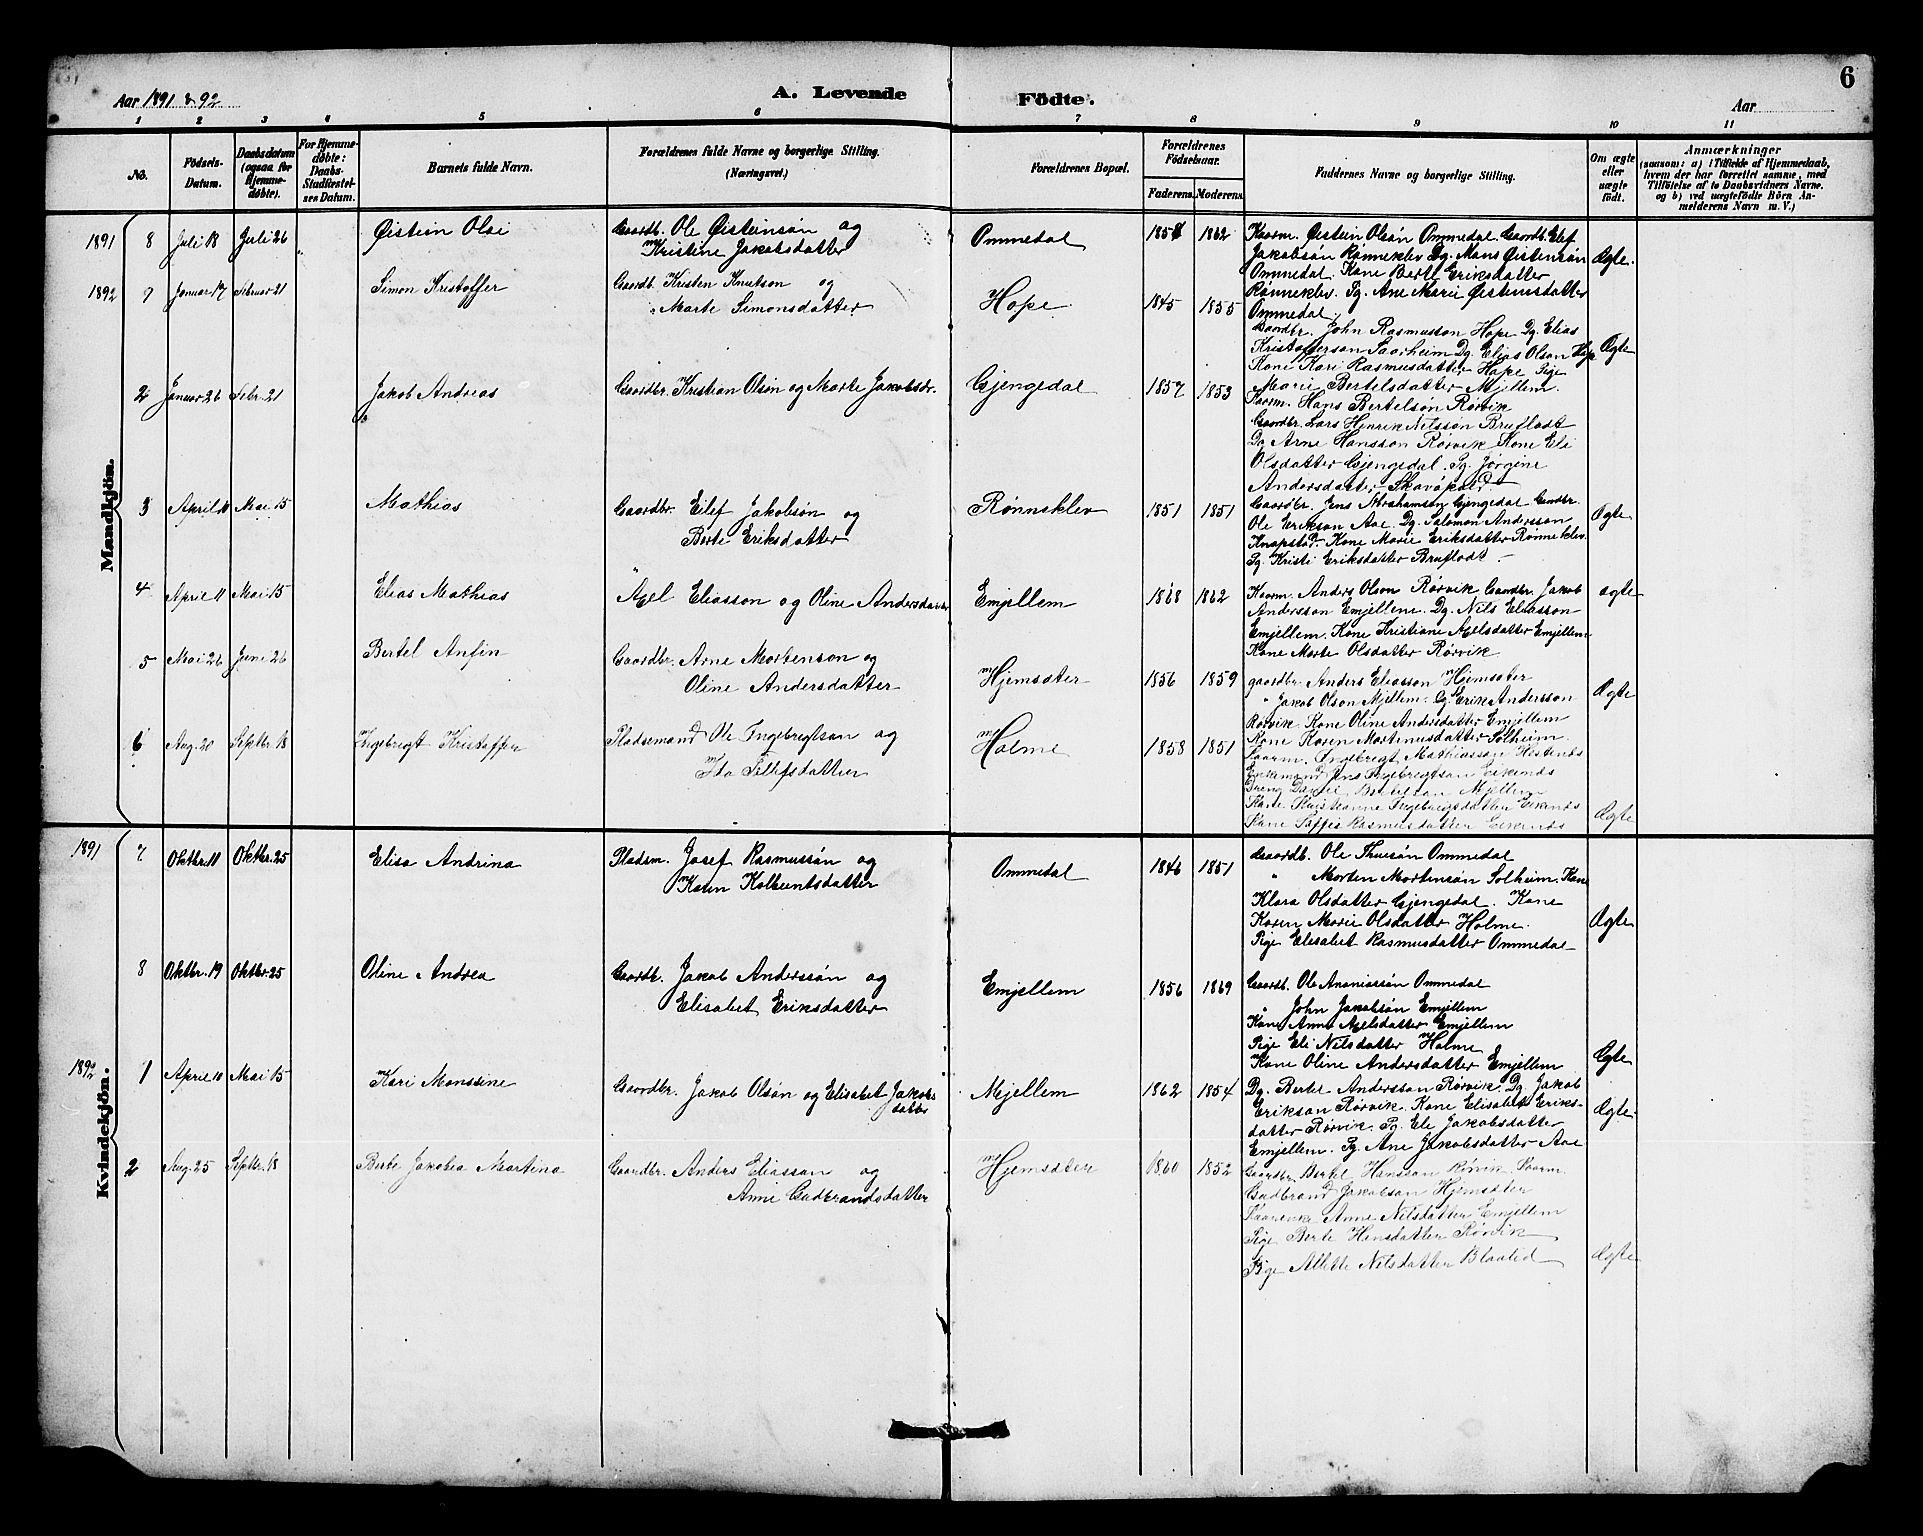 6
Aar 1891 & 92
A. Levende Födte.
Aar
1 2 3 4 5 6 7 8 9 10 11
No.
Födsels-Datum.
Daabsdatum (ogsaa for Hjemmedöbte).
For Hjemmedøbte: Daabs-Stadfæstelses Datum.
Barnets fulde Navn.
Forældrenes fulde Navne og borgerlige Stilling. (Næringsvei.)
Forældrenes Bopæl.
Forældrenes Födselsaar.
Faderens. Moderens.
Faddernes Navne og borgerlige Stilling.
Om ægte eller uægte født.
Anmærkninger
(saasom: a) i Tilfælde af Hjemmedaab, hvem der har forrettet samme, med Tilföielse af to Daabsvidners Navne. og b) ved uægtefödte Börn Anmelderens Navn m. V.)
Mandkjön.
1891 8 Juli 18 Juli 26 Øistein Olai Gaardb. Ole Øisteinsøn og Ommedal 1862 Kaarm. Øistein Olsøn Ommedal. Gaardb. Elef
Kristine Jakobsdatter
Jakobsøn Rønneklev Dg. Mons Øistensøn Ægte.
Ommedal. Kone Berte Eriksdatter
Rønneklev. Pg. Ane Marie Øistensdatter
Ommedal.
1892 Januar 17 Februar 21 Simon Kristoffer Gaardb. Kristen Knutson og Hope 1845 1855
Marte Simonsdatter
Gaardbr. John Rasmusson Hope Dg. Elias
Kristofferson Saarheim Dg. Elias Olson Hope Ægte
Kone Kari Rasmusdatter Hope Pige
Marie Bertelsdatter Mjellem.
2 Januar 26 Febr. 21 Jakob Andreas Gaardbr. Kristian Olsøn og Marte Jakobsdr. Gjengedal 1857 1853
Kaarm. Hans Bertelsøn Rørvik
Gaardbr. Lars Henrik Nilssøn Brufladt
Dg Arne Hansson Rørvik Kone Eli
Olsdatter Gjengedal. Pg. Jørgine
Andersdatter
3 April 11 Mai 15 Mathias Gaardbr. Eilef Jakobsøn og Rønneklev 1851 1851 Gaardbr. Jens Abrahamson Gjengedal Gaardbr.
Berte Eriksdatter
Ole Erikson Aae. Dg. Salomon Andersson Ægte
Knapstad. Kone Marie Eriksdatter Rønneklev.
Pg. Kristi Eriksdatter Brufladt.
4 April 11 Mai 15 Elias Mathias " Axel Eliasson og Oline Andersdatter Emjellem 1868 1862 Kaarm. Anders Olson Rørvik Gaardbr. Jakob Ægte
Andersson Emjellem. Dg. Nils Eliasson
Emjellem. Kone Kristiane Axelsdatter Emjellem
Kone Marte Olsdatter Rørvik.
5 Mai 26 Juni 26 Bertel Anfin Gaardbr. Arne Mortenson og Hjemsæter 1856 1859 gaardbr. Anders Eliasson Hjemsæter
Oline Andersdatter
" Jakob Olson Mjellem. Dg. Erik Andersson Ægte
Rørvik. Kone Oline Andersdatter Emjellem
Kone Karen Mortensdatter Solheim.
6 Aug. 20 Septbr. 18 Ingebregt Kristoffer Pladsemand Ole Ingebregtson og Holme 1858 1851
Ida
Kaarm. Ingebregt Mathiasson Hestenes
Jens Ingebregtson Eikenes
Dreng Bertelson Mjellem
Kone Kristianne Ingebregtsdatter Eikenes Ægte
Kone Rasmusdatter Eikenes
Kvindekjön.
1891 7 Oktbr. 11 Oktbr. 25 Elisa Andrina Pladsm. Josef Rasmussøn og Ommedal 1846 1851 Gaardb. Ole Thuesøn Ommedal
Karen Kolbeintsdatter
" Morten Mortensøn Solheim. Kone
Klara Olsdatter Gjengedal. Kone
Karen Marie Olsdatter Holme. Ægte
Pige Elisabet Rasmusdatter Ommedal
8 Oktbr. 19 Oktbr. 25 Oline Andrea Gaardb. Jakob Anderssøn og Emjellem 1856 1869 Gaardb. Ole Ananiassøn Ommedal
Elisabet Eriksdatter
" John Jakobsøn Emjellem
Kone Anne Axelsdatter Emjellem
Pige Eli Nilsdatter Holme Ægte
Kone Oline Andersdatter Emjellem
1892 1 April 10 Mai 15 Kari Monssine Gaardbr. Jakob Olsøn og Elisabet Jakobsdatter Mjellem 1862 1854 Dg. Bertel Andersson Rørvik Dg. Jakob
Erikson Rørvik. Kone Elisabet Eriks- Ægte
datter Rørvik. Pg. Eli Jakobsdatter
Emjellem. Pg. Ane Jakobsdatter Aae
2 Aug. 25 Septbr. 18 Berte Jakobea Martina Gaardbr. Anders Eliasson og Hjemsæter 1860 1852 Gaardbr. Bertel Hansson Rørvik Kaarm.
Anne Gudbrandsdatter
Gudbrand Jakobson Hjemsæter
Anne Nilsdatter Emjellem
Pige Berte Hansdatter Rørvik
Pige Alette Nilsdatter Ægte